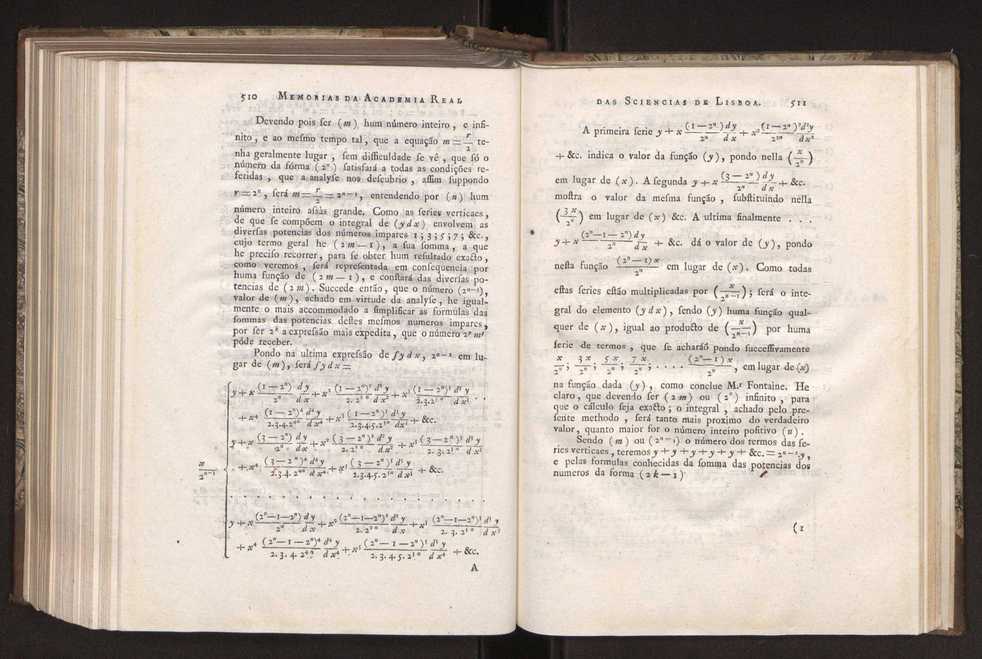 510 MEMORIAS DA ACADEMIA REAL
Devendo pois ser (m) hum número inteiro, e infi-
nito, e ao mesmo tempo tal, que a equação m = r/2 te-
nha geralmente lugar, sem difficuldade se vê, que só o
número da fórma (2ⁿ) satisfará a todas as condições re-
feridas, que a analyse nos descubrio, assim suppondo
r = 2ⁿ, será m = r/2 = 2ⁿ⁻¹, entendendo por (n) hum
número inteiro assás grande. Como as series verticaes,
de que se compõem o integral de (y d x) envolvem as
diversas potencias dos números impares 1; 3; 5; 7; &c.,
cujo termo geral he (2m — 1), a sua somma, a que
he preciso recorrer, para se obter hum resultado exacto,
como veremos, será representada em consequencia por
huma função de (2m — 1), e constará das diversas po-
tencias de (2m). Succede então, que o número (2ⁿ⁻¹),
valor de (m), achado em virtude da analyse, he igual-
mente o mais accommodado a simplificar as formulas das
sommas das potencias destes mesmos numeros impares,
por ser 2ⁿ a expressão mais expedita, que o número 2ᵖ mᵖ
póde receber.
Pondo na ultima expressão de ∫y d x, 2ⁿ⁻¹ em lu-
gar de (m), será ∫y d x =
y + x (1 — 2ⁿ)/2ⁿ dy/dx + x² (1 — 2ⁿ)²/2.2²ⁿ d²y/dx² + x³ (1 — 2ⁿ)³/2.3.2³ⁿ d³y/dx³ . .
+ x⁴ (1 — 2ⁿ)⁴/2.3.4.2⁴ⁿ d⁴y/dx⁴ + x⁵ (1 — 2ⁿ)⁵/2.3.4.5.2⁵ⁿ d⁵y/dx⁵ + &c.
y + x (3 — 2ⁿ)/2ⁿ dy/dx + x² (3 — 2ⁿ)²/2.2²ⁿ d²y/dx² + x³ (3 — 2ⁿ)³/2.3.2³ⁿ d³y/dx³
x/2ⁿ⁻¹ . + x⁴ (3 — 2ⁿ)⁴/2.3.4.2⁴ⁿ d⁴y/dx⁴ + x⁵ (3 — 2ⁿ)⁵/2.3.4.5.2⁵ⁿ d⁵y/dx⁵ + &c.
. . . . . . . . . . . . . . . . . . . .
y + x (2ⁿ—1—2ⁿ)/2ⁿ dy/dx + x² (2ⁿ—1—2ⁿ)²/2.2²ⁿ d²y/dx² + x³ (2ⁿ—1—2ⁿ)³/2.3.2³ⁿ d³y/dx³
+ x⁴ (2ⁿ—1—2ⁿ)⁴/2.3.4.2⁴ⁿ d⁴y/dx⁴ + x⁵ (2ⁿ—1—2ⁿ)⁵/2.3.4.5.2⁵ⁿ d⁵y/dx⁵ + &c.
A
DAS SCIENCIAS DE LISBOA. 511
A primeira serie y + x (1 — 2ⁿ) dy/2ⁿ dx + x² (1 — 2ⁿ)² d²y/2²ⁿ dx²
+ &c. indica o valor da função (y), pondo nella (x/2ⁿ)
em lugar de (x). A segunda y + x (3 — 2ⁿ) dy/2ⁿ dx + &c.
mostra o valor da mesma função, substituindo nella
(3x/2ⁿ) em lugar de (x) &c. A ultima finalmente . . .
y + x (2ⁿ—1—2ⁿ) dy/2ⁿ dx + &c. dá o valor de (y), pondo
nesta função (2ⁿ—1)x/2ⁿ em lugar de (x). Como todas
estas series estão multiplicadas por (x/2ⁿ⁻¹); será o inte-
gral do elemento (y d x), sendo (y) huma função qual-
quer de (x), igual ao producto de (x/2ⁿ⁻¹) por huma
serie de termos, que se acharáõ pondo successivamente
x/2ⁿ; 3x/2ⁿ; 5x/2ⁿ; 7x/2ⁿ; . . . . (2ⁿ—1)x/2ⁿ, em lugar de (x)
na função dada (y), como conclue M.ʳ Fontaine. He
claro, que devendo ser (2m) ou (2ⁿ) infinito, para
que o cálculo seja exacto; o integral, achado pelo pre-
sente methodo, será tanto mais proximo do verdadeiro
valor, quanto maior for o número inteiro positivo (n).
Sendo (m) ou (2ⁿ⁻¹) o número dos termos das se-
ries verticaes, teremos y + y + y + y + y + &c. = 2ⁿ⁻¹ y,
e pelas formulas conhecidas da somma das potencias dos
numeros da forma (2k — 1)
(1